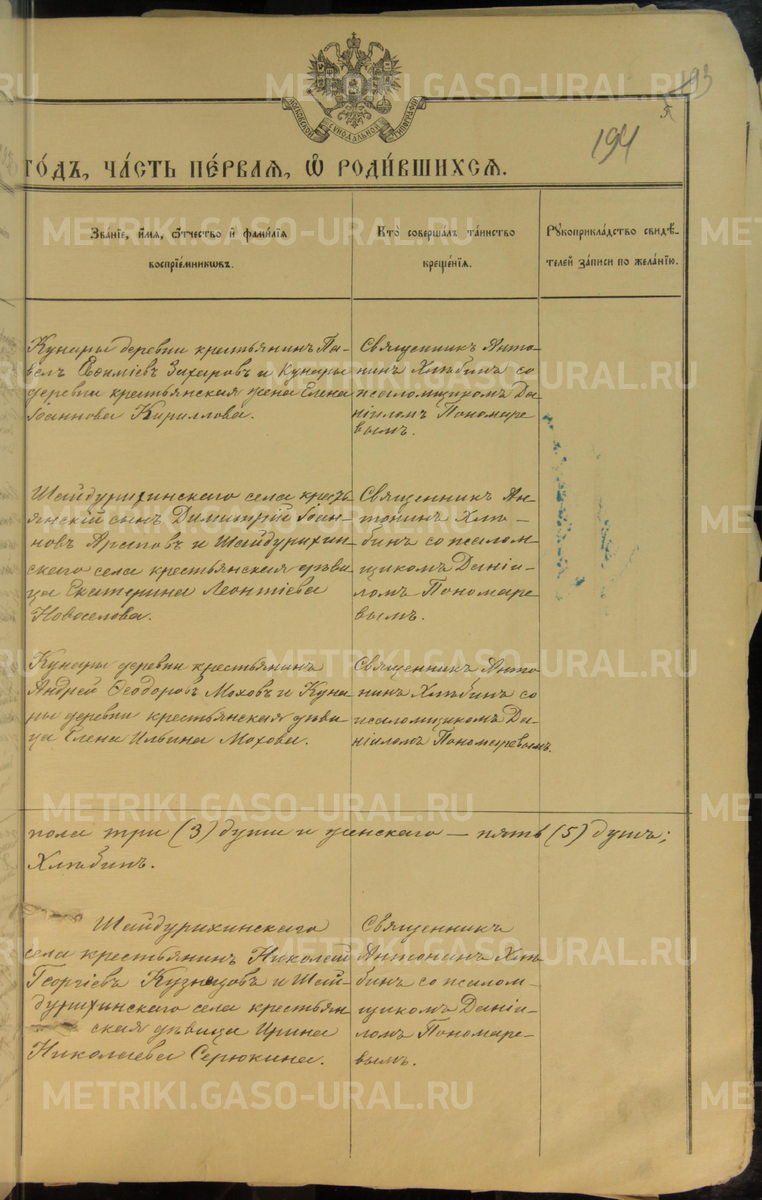 93
5
194
МОСКОВСКОЙ СѴНОДАЛЬНОЙ ТИПОГРАФІИ
ГО́ДЪ, ЧА́СТЬ ПЕ́РВАЯ, Ѡ҆ РОДИ́ВШИХСЯ.
Зва́нїе, и҆́мѧ, ѻ҆́тчество и҆ фами́лїѧ
воспрїе́мникѡвъ.
Кто̀ соверша́лъ та́инство
креще́нїѧ.
Рꙋкоприкла́дство свидѣ́-
телей за́писи по жела́нїю.
Кунары деревни крестьянинъ Па-
велъ Евѳиміевъ Захаровъ и Кунары
деревни крестьянская жена Елена
Іоаннова Кириллова.
Священникъ Анто-
нинъ Хлѣбинъ со
псаломщикомъ Да-
ніиломъ Пономаре-
вымъ.
Шайдурихинскаго села кресть-
янскій сынъ Димитрій Іоан-
новъ Араповъ и Шайдурихин-
скаго села крестьянская дѣви-
ца Екатерина Леонтіева
Новоселова.
Священникъ Ан-
тонинъ Хлѣ-
бинъ со псалом-
щикомъ Даніи-
ломъ Пономаре-
вымъ.
Кунары деревни крестьянинъ
Андрей Ѳеодоровъ Моховъ и Куна-
ры деревни крестьянская дѣви-
ца Елена Ильина Мохова.
Священникъ Анто-
нинъ Хлѣбинъ со
псаломщикомъ Да-
ніиломъ Пономаревымъ.
пола три (3) души и женскаго — пять (5) душъ;
Хлѣбинъ.
Шайдурихинскаго
села крестьянинъ Николай
Георгіевъ Кузнецовъ и Шай-
дурихинскаго села крестьян-
ская дѣвица Ирина
Николаева Серюкина.
Священникъ
Антонинъ Хлѣ-
бинъ со псалом-
щикомъ Даніи-
ломъ Пономаре-
вымъ.
METRIKI.GASO-URAL.RU